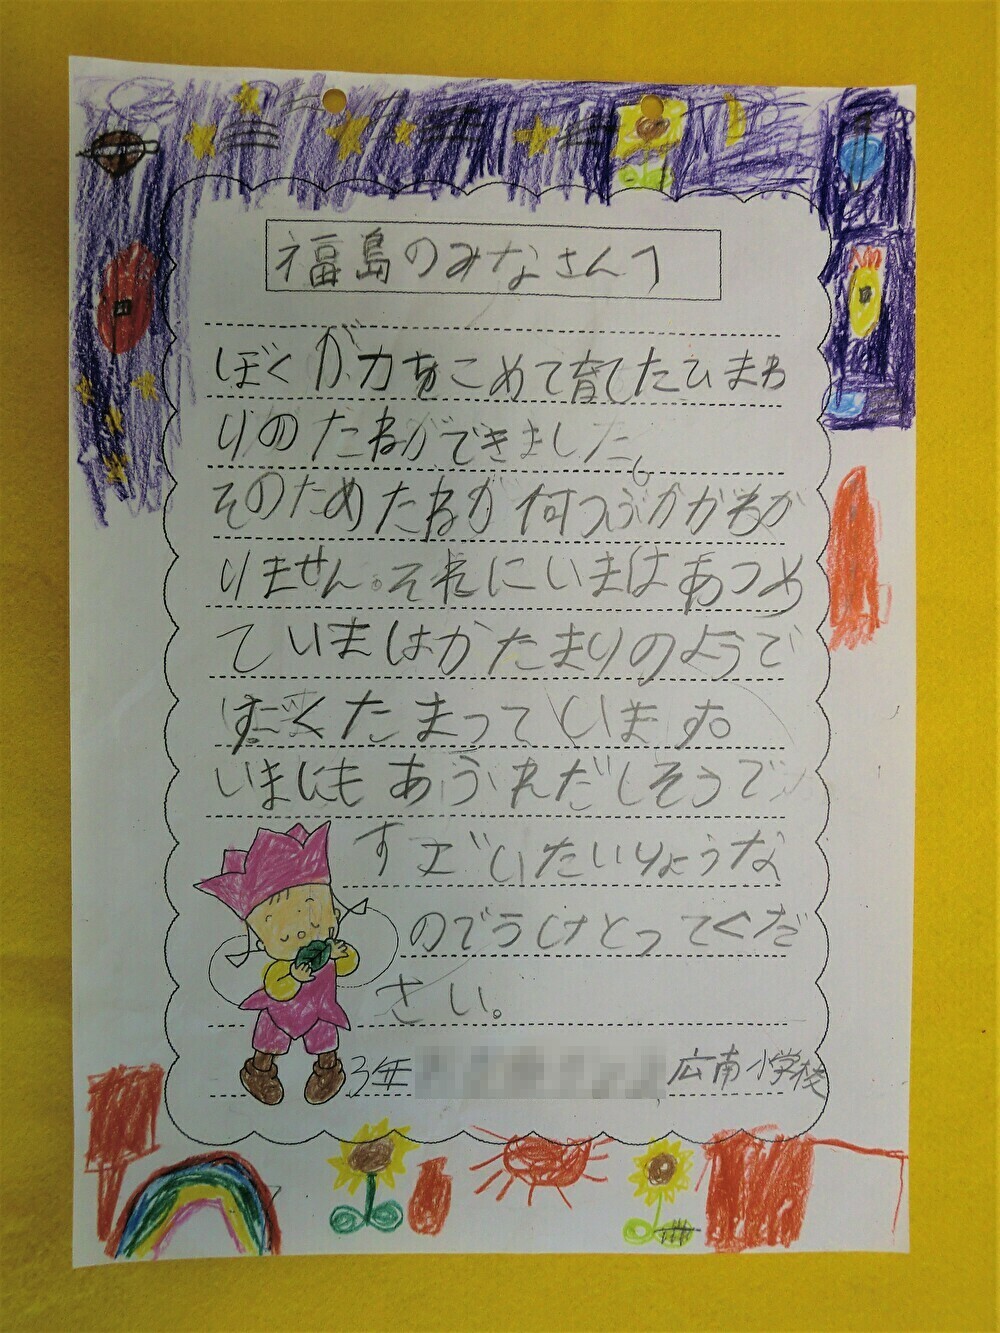 福島のみなさんへ
ぼくが力をこめて育てたひまわ
りのたねができました。
そのためたねが何つぶかがわか
りません。それにいまはあつめ
ていまはかたまりのようで
すごくたまっています。
いまにもあふれだしそうで
すごいたいりょうな
のでうけとってくだ
さい。
3年 広南小学校